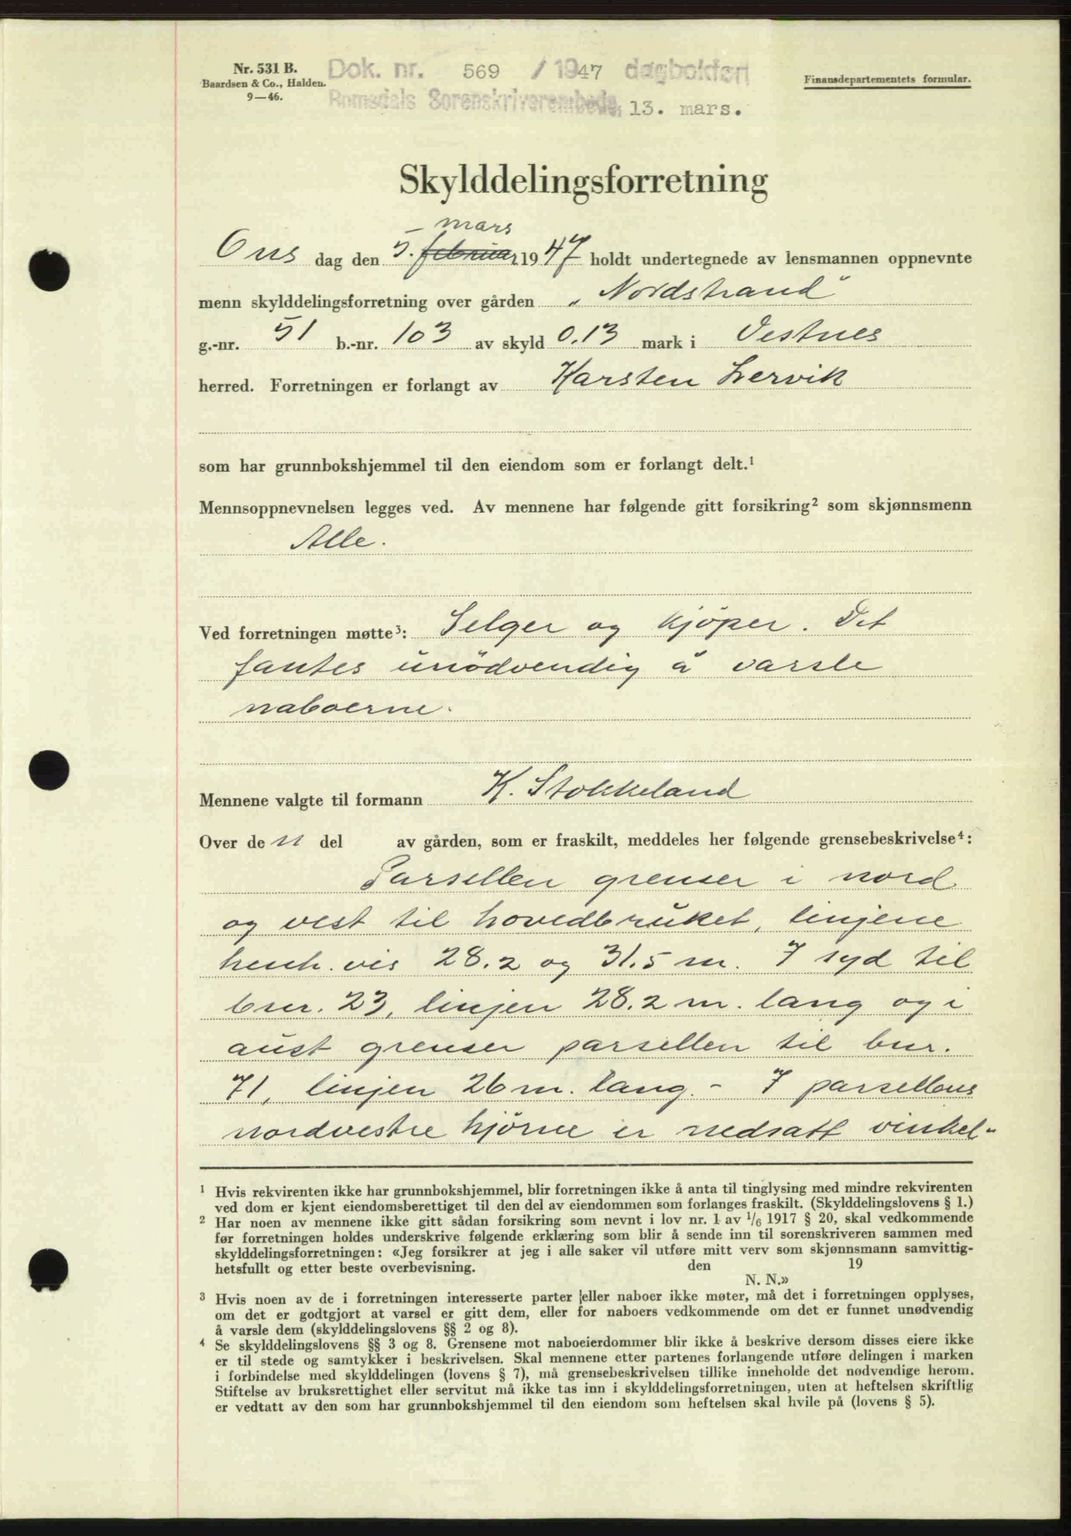 Nr. 531 B.
Baardsen & Co., Halden.
9—46.
Dok. nr. 569 / 1947 dagboken
Romsdals Sorenskriverembede, 13. mars.
Finansdepartementets formular.
Skylddelingsforretning
mars
Ons dag den 5. februar 1947 holdt undertegnede av lensmannen oppnevnte
menn skylddelingsforretning over gården „Nordstrand“
g.-nr. 51 b.-nr. 103 av skyld 0.13 mark i Vestnes
herred. Forretningen er forlangt av Karsten Lervik
som har grunnbokshjemmel til den eiendom som er forlangt delt.¹
Mennsoppnevnelsen legges ved. Av mennene har følgende gitt forsikring² som skjønnsmenn
Alle.
Ved forretningen møtte³: Selger og kjöper. Det
fantes unödvendig å varsle
naboerne.
Mennene valgte til formann K. Stokkeland
Over de n del av gården, som er fraskilt, meddeles her følgende grensebeskrivelse⁴:
Parsellen grenser i nord
og vest til hovedbruket, linjene
hench. vis 28.2 og 31.5 m. I syd til
bnr. 23, linjen 28.2 m. lang og i
aust grenser parsellen til bnr.
71, linjen 26 m. lang. - I parsellens
nordvestre hjörne er nedsatt vinkel-
¹ Hvis rekvirenten ikke har grunnbokshjemmel, blir forretningen ikke å anta til tinglysing med mindre rekvirenten
ved dom er kjent eiendomsberettiget til den del av eiendommen som forlanges fraskilt. (Skylddelingslovens § 1.)
² Har noen av mennene ikke gitt sådan forsikring som nevnt i lov nr. 1 av 1/6 1917 § 20, skal vedkommende
før forretningen holdes underskrive følgende erklæring som blir å sende inn til sorenskriveren sammen med
skylddelingsforretningen: «Jeg forsikrer at jeg i alle saker vil utføre mitt verv som skjønnsmann samvittig-
hetsfullt og etter beste overbevisning. den 19
N. N.»
³ Hvis noen av de i forretningen interesserte parter eller naboer ikke møter, må det i forretningen opplyses,
om det er godtgjort at varsel er gitt dem, eller for naboers vedkommende om det er funnet unødvendig
å varsle dem (skylddelingslovens §§ 2 og 8).
⁴ Se skylddelingslovens §§ 3 og 8. Grensene mot naboeierdommer blir ikke å beskrive dersom disses eiere ikke
er til stede og samtykker i beskrivelsen. Skal mennene etter partenes forlangende utføre delingen i marken
i forbindelse med skylddelingen (lovens § 7), må grensebeskrivelsen tillike inneholde det nødvendige herom.
Stiftelse av bruksrettighet eller servitut må ikke tas inn i skylddelingsforretningen, uten at heftelsen skriftlig
er vedtatt av den som har grunnbokshjemmel til den eiendom som heftelsen skal hvile på (lovens § 5).